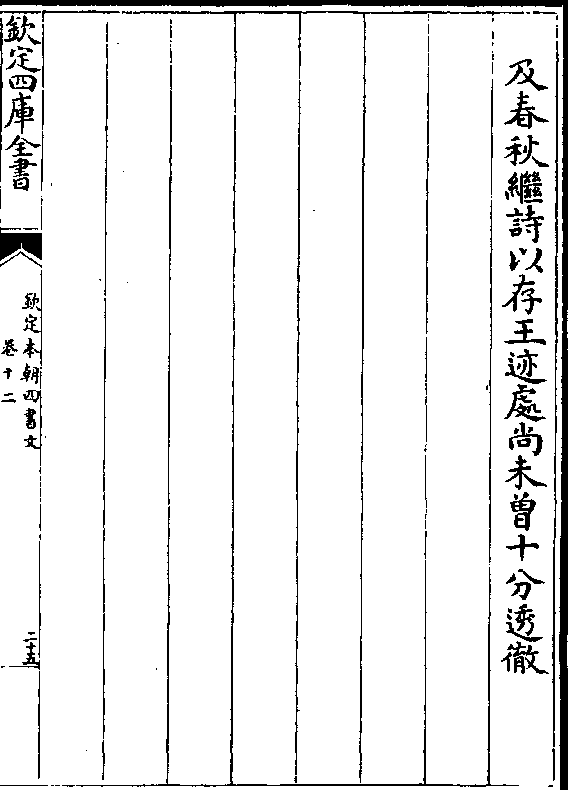 及春秋繼詩以存王迹處尚未曽十分透徹
欽定四庫全書
欽定本朝四書文
卷十二
二十五